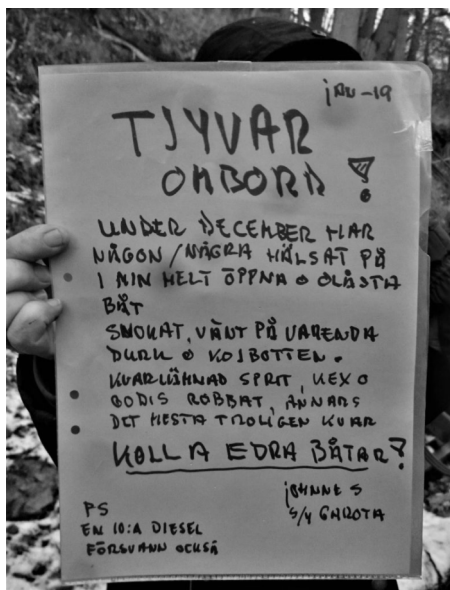 jAN -19
TJYVAR
OMBORD!
UNDER DECEMBER HAR
NÅGON/NÅGRA HÄLSAT PÅ
I MIN HELT ÖPPNA O OLÅSTA
BÅT
SNOKAT, VÄNT PÅ VARENDA
DURK O KOJBOTTEN.
KVARLÄMNAD SPRIT, KEX O
GODIS RÖBBAT, ANNARS
DET MESTA TROLIGEN KVAR
KOLLA EDRA BÅTAR!
jOHNNE S
S/Y GAROTA
PS
EN 10:A DIESEL
FÖRSVANN OCKSÅ